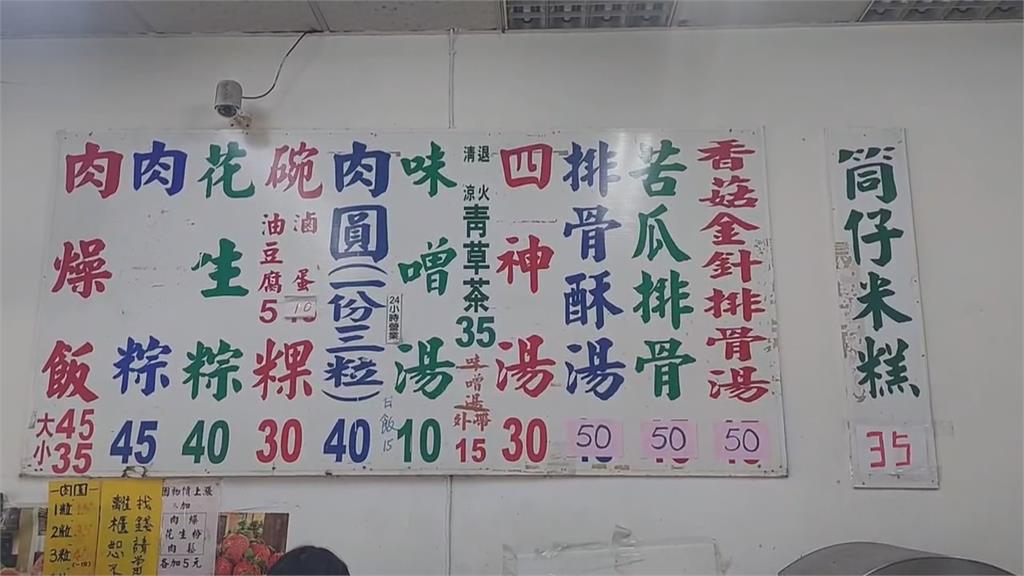 肉燥飯
大45
小35
肉粽
45
花生粽
40
碗粿
30
油豆腐
5
滷蛋
10
肉圓(一份三粒)
40
24小時營業
白飯15
味噌湯
10
清涼
退火
青草茶
35
味噌湯
外帶
15
四神湯
30
排骨酥湯
50
苦瓜排骨
50
香菇金針排骨湯
50
筒仔米糕
35
肉圓
1粒
2粒
3粒
找錢請當
離櫃恕不
因物價上漲
肉燥
花生粉
肉鬆
各加5元